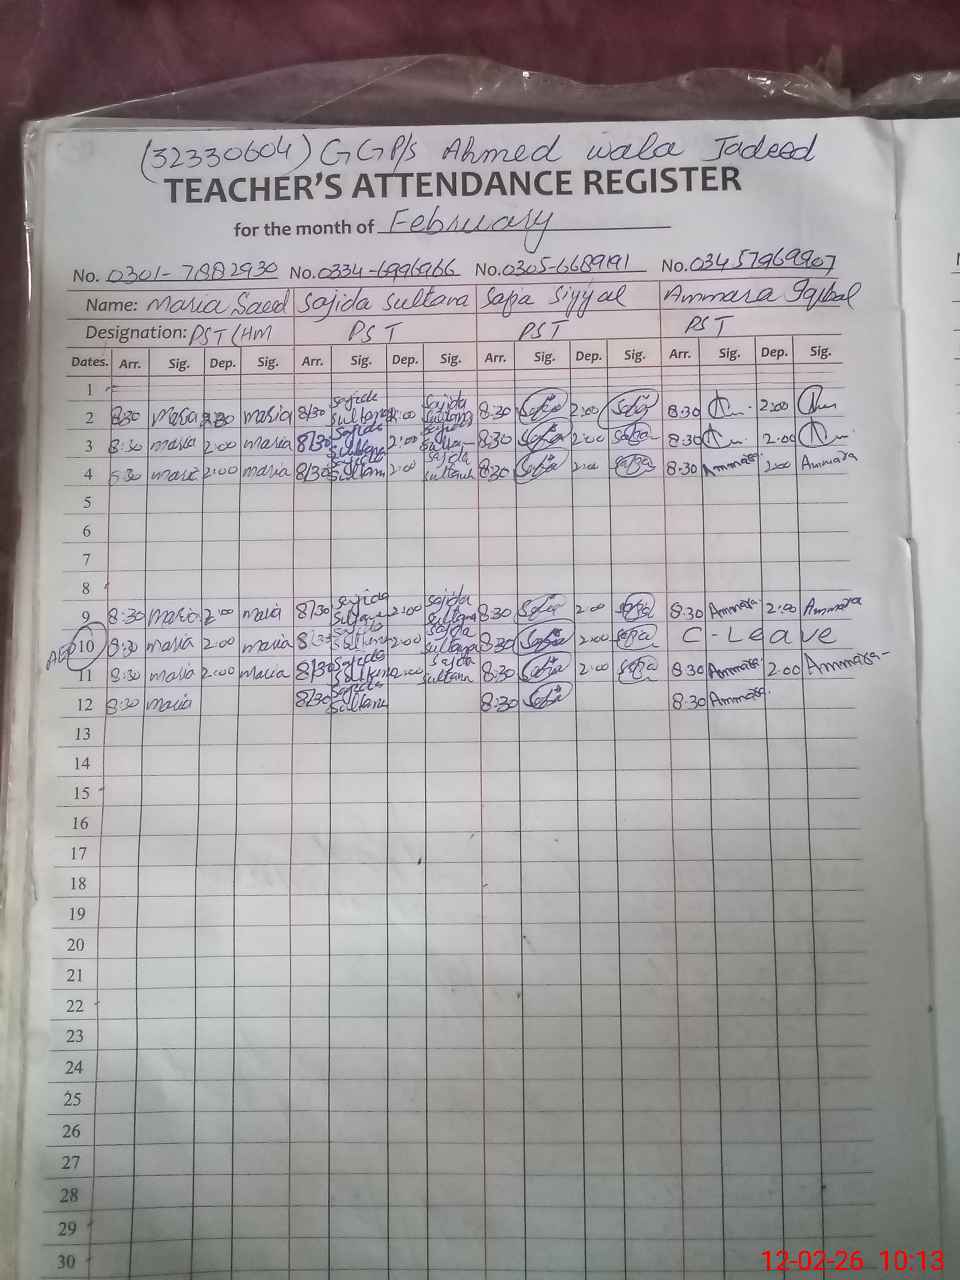 (32330604) G G P/s Ahmed wala Jadeed
TEACHER'S ATTENDANCE REGISTER
for the month of February
No. 0301-7882930 No. 0334-6996966 No. 0305-6689191 No. 03457969907
Name: Maria Saeed Sajida Sultana Safia Siyyal Ammara Iqbal
Designation: PST/HM PST PST PST
Dates. Arr. Sig. Dep. Sig. Arr. Sig. Dep. Sig. Arr. Sig. Dep. Sig. Arr. Sig. Dep. Sig.
1
2 8:30 Maria 2:00 maria 8/30 Sajida Sultana 2:00 Sajida Sultana 8:30 Safia 2:00 Safia 8:30 2:00
3 8:30 maria 2:00 maria 8/30 Sajida Sultana 2:00 Sajida Sultana 8:30 Safia 2:00 Safia 8:30 2:00
4 8:30 maria 2:00 maria 8/30 Sajida Sultana 2:00 Sajida Sultana 8:30 Safia 2:00 Safia 8:30 Ammara 2:00 Ammara
5
6
7
8
9 8:30 Maria 2:00 maria 8/30 Sajida Sultana 2:00 Sajida Sultana 8:30 Safia 2:00 Safia 8:30 Ammara 2:00 Ammara
10 8:30 maria 2:00 maria 8/30 Sajida Sultana 2:00 Sajida Sultana 8:30 Safia 2:00 Safia C-Leave
11 8:30 maria 2:00 maria 8/30 Sajida Sultana 2:00 Sajida Sultana 8:30 Safia 2:00 Safia 8:30 Ammara 2.00 Ammara
12 8:30 maria 8/30 Sajida Sultana 8:30 Safia 8:30 Ammara
13
14
15
16
17
18
19
20
21
22
23
24
25
26
27
28
29
30
12-02-26 10:13